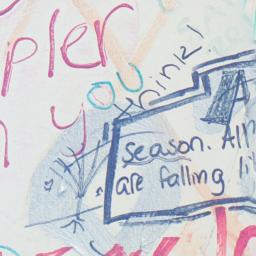 pler
you think!
n y
A
season. All
are falling li